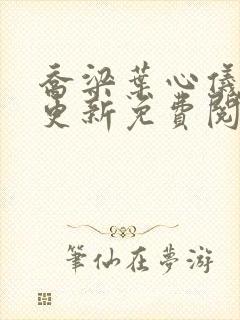 喬梁葉心儀
更新免費閱
筆仙在夢游